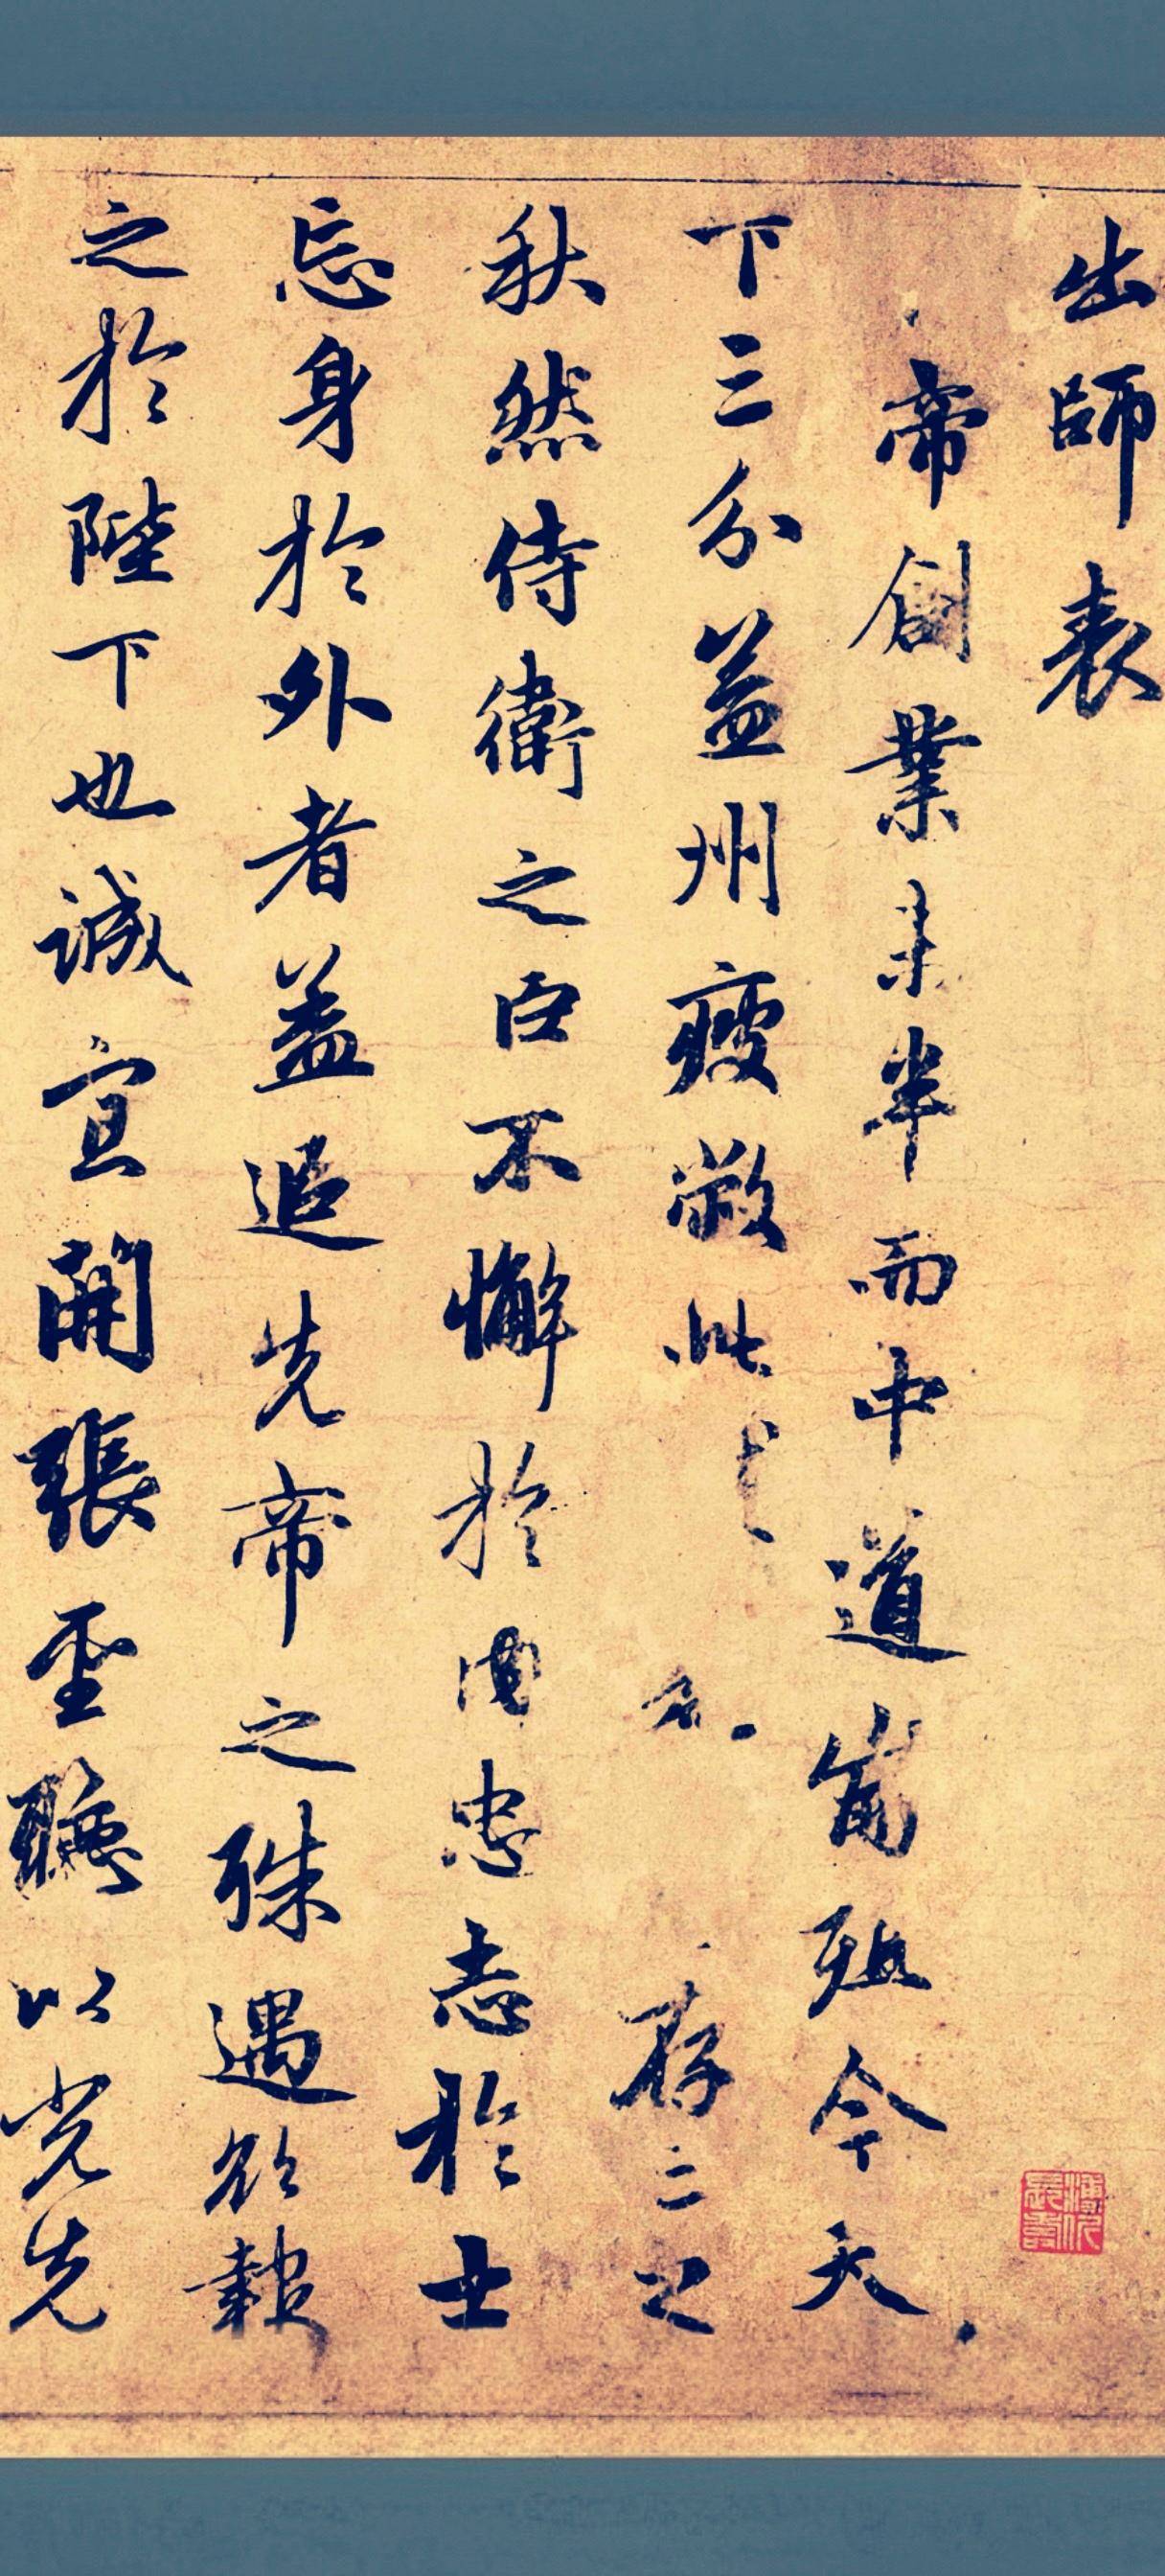 出師表
帝創業未半而中道崩殂今天
下三分益州疲敝此存之
秋然侍衛之臣不懈於内忠志於士
忘身於外者盖追先帝之殊遇欲報
之於陛下也誠宜開張聖聽以光先